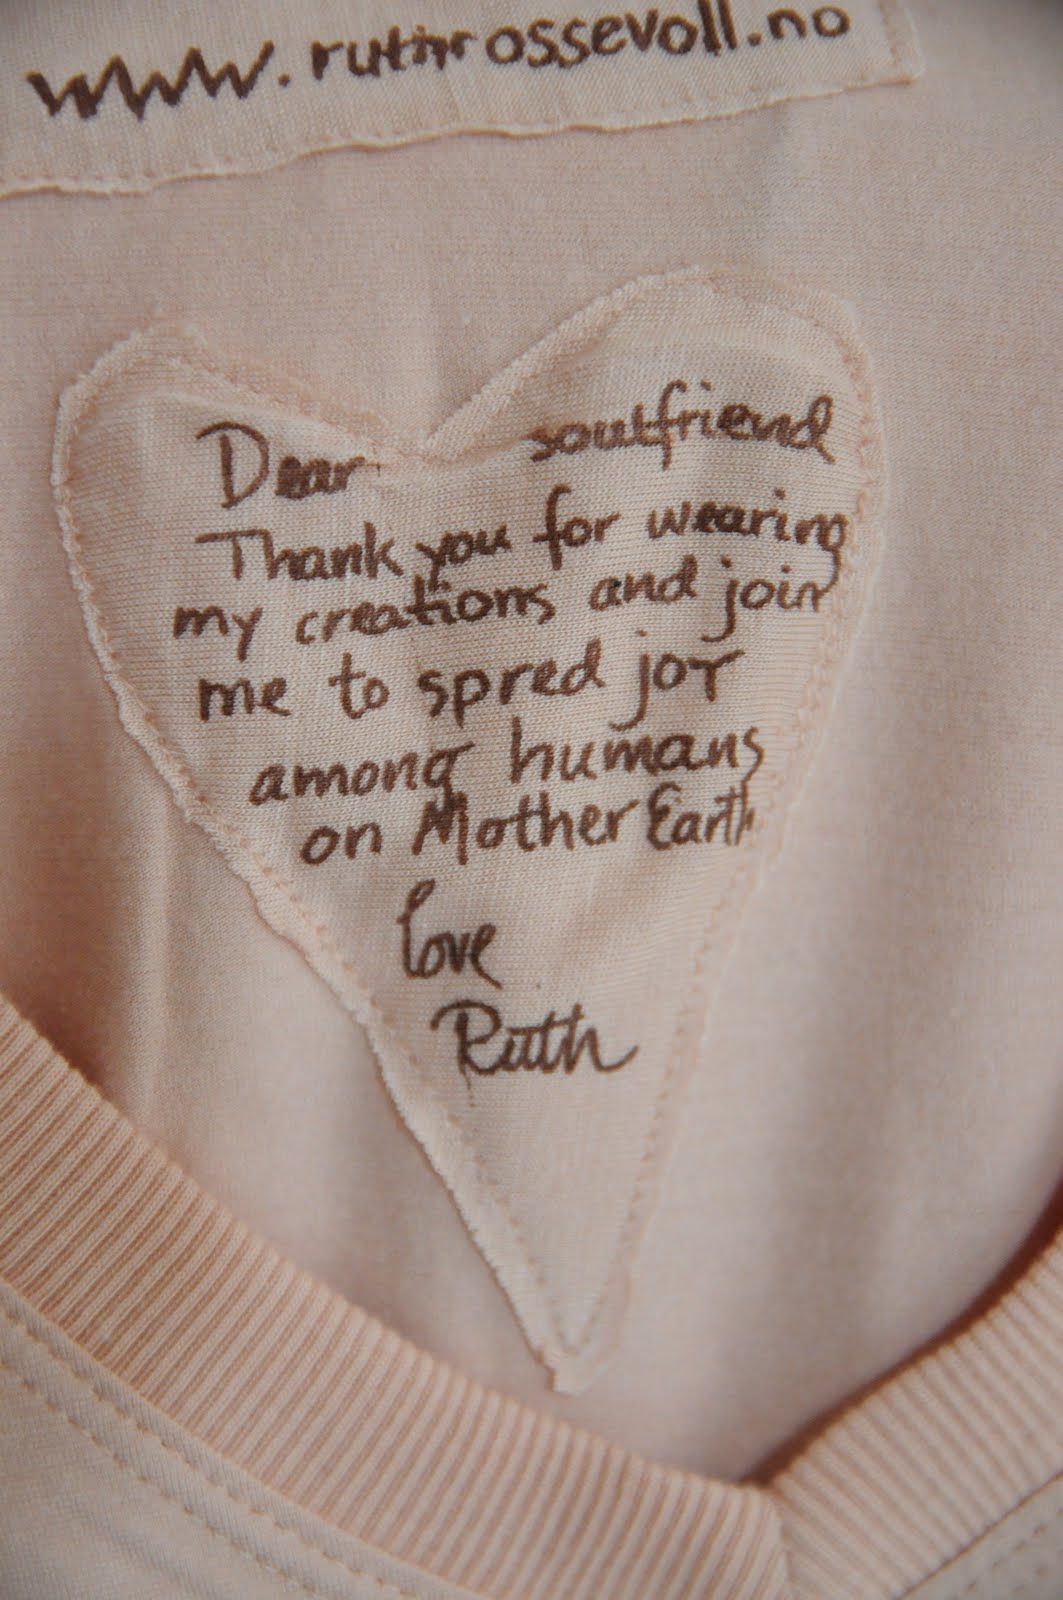 www.ruthrossevoll.no
Dear soulfriend
Thank you for wearing
my creations and join
me to spred joy
among humans
on Mother Earth
love
Ruth